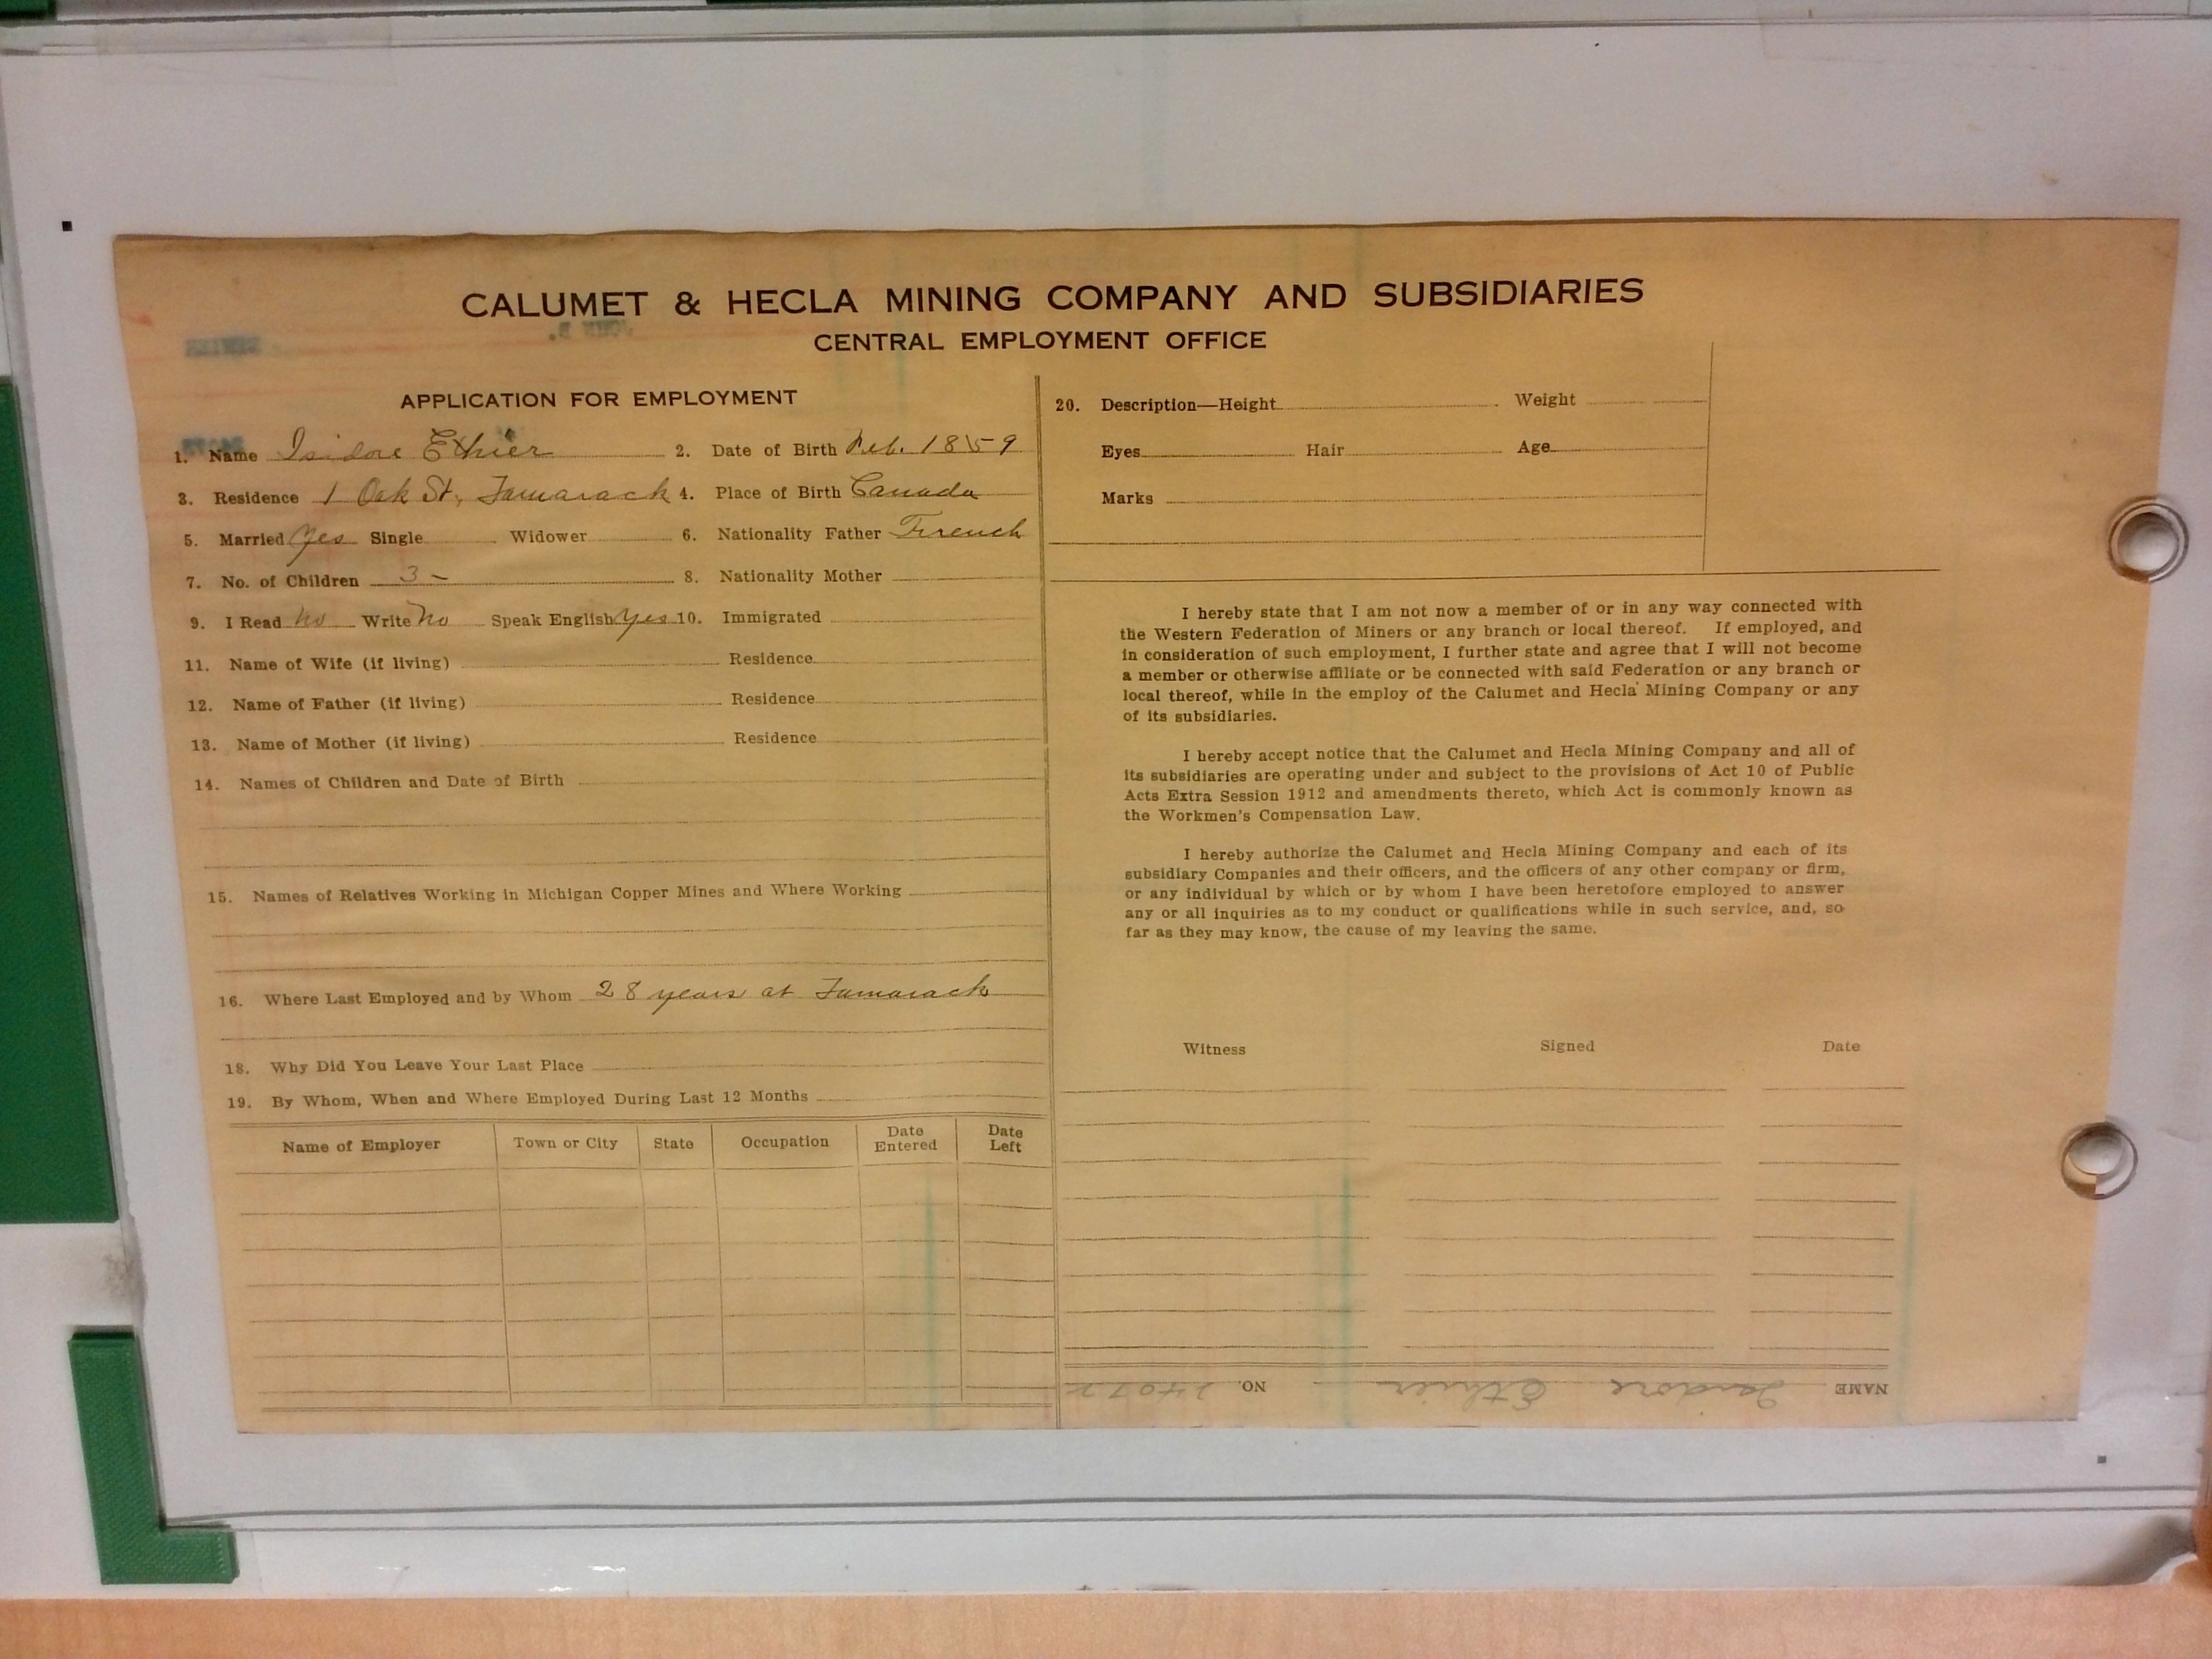 CALUMET & HECLA MINING COMPANY AND SUBSIDIARIES
CENTRAL EMPLOYMENT OFFICE
APPLICATION FOR EMPLOYMENT
1. Name Isidore Ethier 2. Date of Birth Feb. 1859
3. Residence 1 Oak St, Tamarack 4. Place of Birth Canada
5. Married Yes Single Widower 6. Nationality Father French
7. No. of Children 3 - 8. Nationality Mother
9. I Read No Write No Speak English Yes 10. Immigrated
11. Name of Wife (if living) Residence
12. Name of Father (if living) Residence
13. Name of Mother (if living) Residence
14. Names of Children and Date of Birth
15. Names of Relatives Working in Michigan Copper Mines and Where Working
16. Where Last Employed and by Whom 28 years at Tamarack
18. Why Did You Leave Your Last Place
19. By Whom, When and Where Employed During Last 12 Months
Name of Employer Town or City State Occupation Date Entered Date Left
20. Description—Height Weight
Eyes Hair Age
Marks
I hereby state that I am not now a member of or in any way connected with
the Western Federation of Miners or any branch or local thereof. If employed, and
in consideration of such employment, I further state and agree that I will not become
a member or otherwise affiliate or be connected with said Federation or any branch or
local thereof, while in the employ of the Calumet and Hecla Mining Company or any
of its subsidiaries.
I hereby accept notice that the Calumet and Hecla Mining Company and all of
its subsidiaries are operating under and subject to the provisions of Act 10 of Public
Acts Extra Session 1912 and amendments thereto, which Act is commonly known as
the Workmen's Compensation Law.
I hereby authorize the Calumet and Hecla Mining Company and each of its
subsidiary Companies and their officers, and the officers of any other company or firm,
or any individual by which or by whom I have been heretofore employed to answer
any or all inquiries as to my conduct or qualifications while in such service, and, so
far as they may know, the cause of my leaving the same.
Witness Signed Date
NAME Isidore Ethier NO. 24072